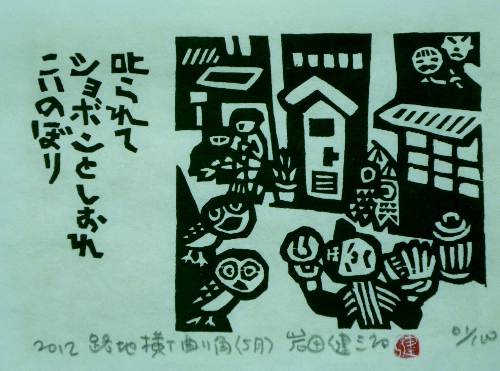 叱られて
ショボンとしおれ
こいのぼり
2012 路地横丁曲り角(5月) 岩田健三郎